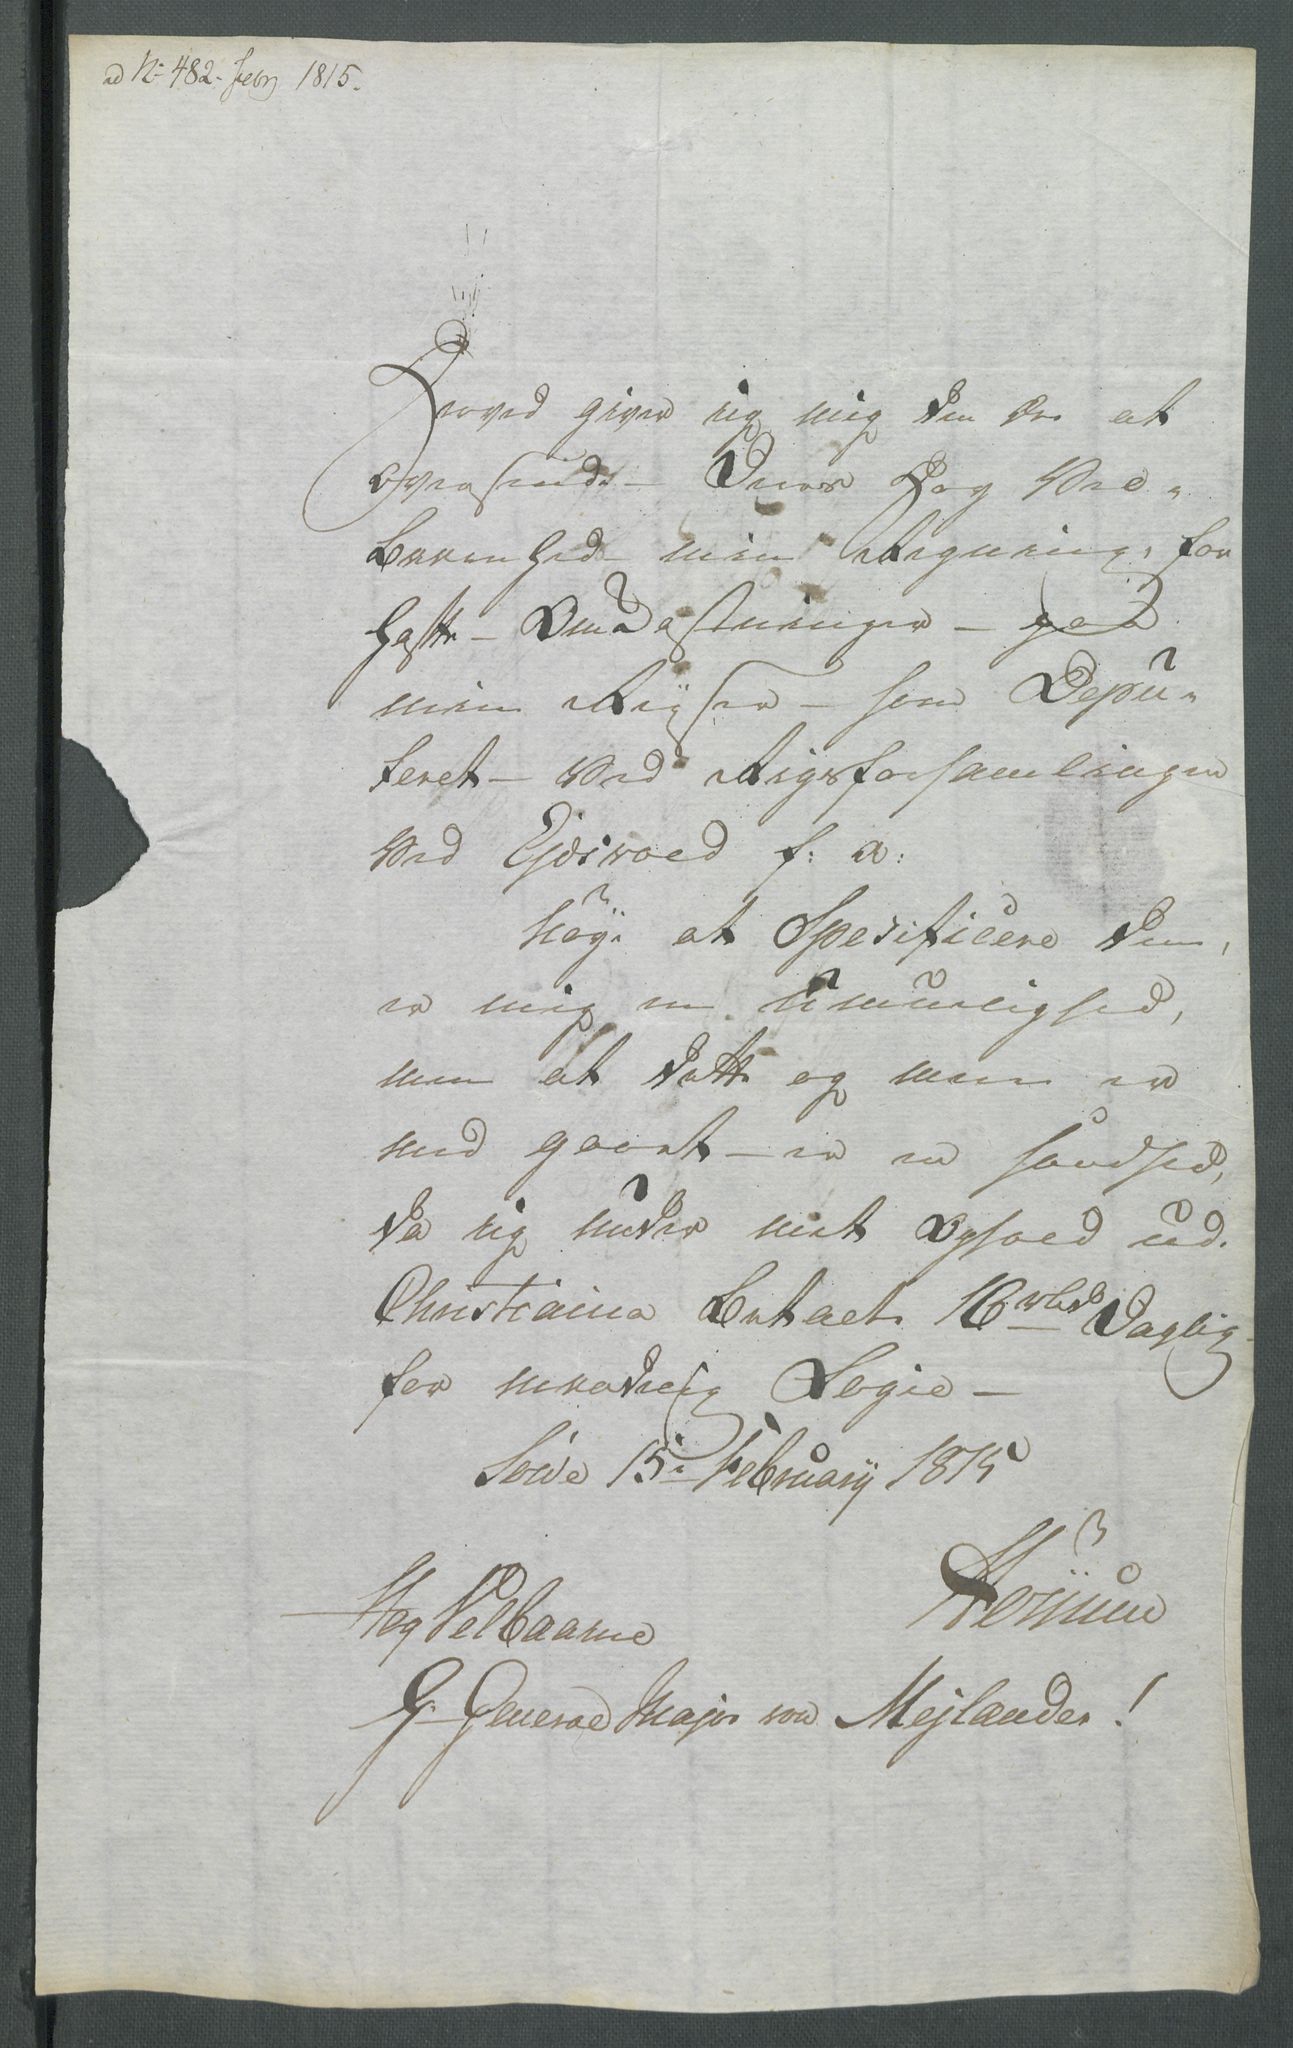 ad No 482. Febr 1815.
Herved giver jeg mig den Ære at
oversende Deres Høy Vel-
baarenhed min Regning, for
hafte Omkostninger – paa
min Reyse – som Depu-
teret – ved Rigsforsamlingen
ved Ejdsvold f: A:
Nøye at Spesificere dem,
er mig en Umuelighed,
men at dette og mere er
med gaaet – er en sandhed,
da jeg under mit Ophold ud.
Christiania betalte 16 rbd Daglig
for maadelig Logie –
15de February 1815
Høy Velbaarne
Hr General Major von Mejlander!